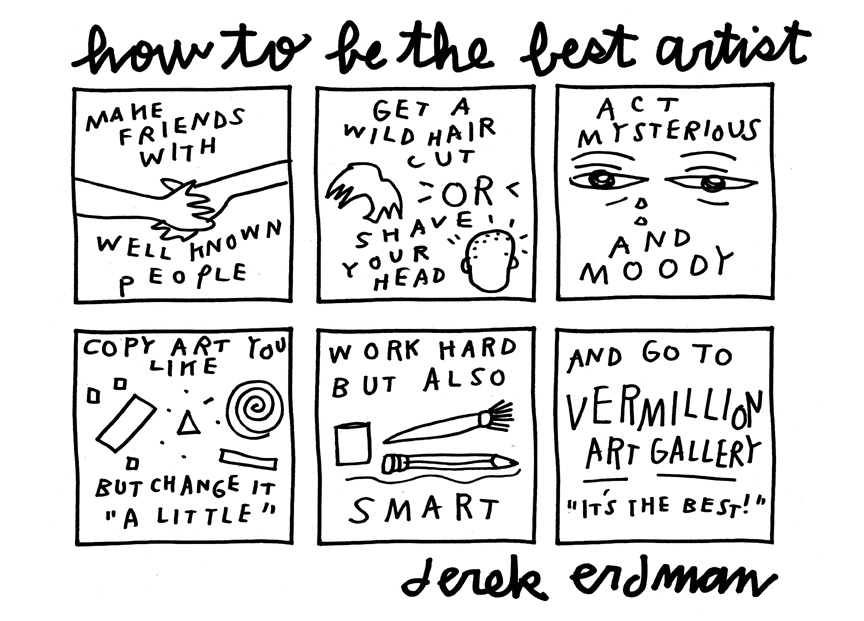 how to be the best artist
MAKE
FRIENDS
WITH
WELL KNOWN
PEOPLE
GET A
WILD HAIR
CUT
OR
SHAVE
YOUR
HEAD
ACT
MYSTERIOUS
AND
MOODY
COPY ART YOU
LIKE
BUT CHANGE IT
"A LITTLE"
WORK HARD
BUT ALSO
SMART
AND GO TO
VERMILLION
ART GALLERY
"IT'S THE BEST!"
derek erdman